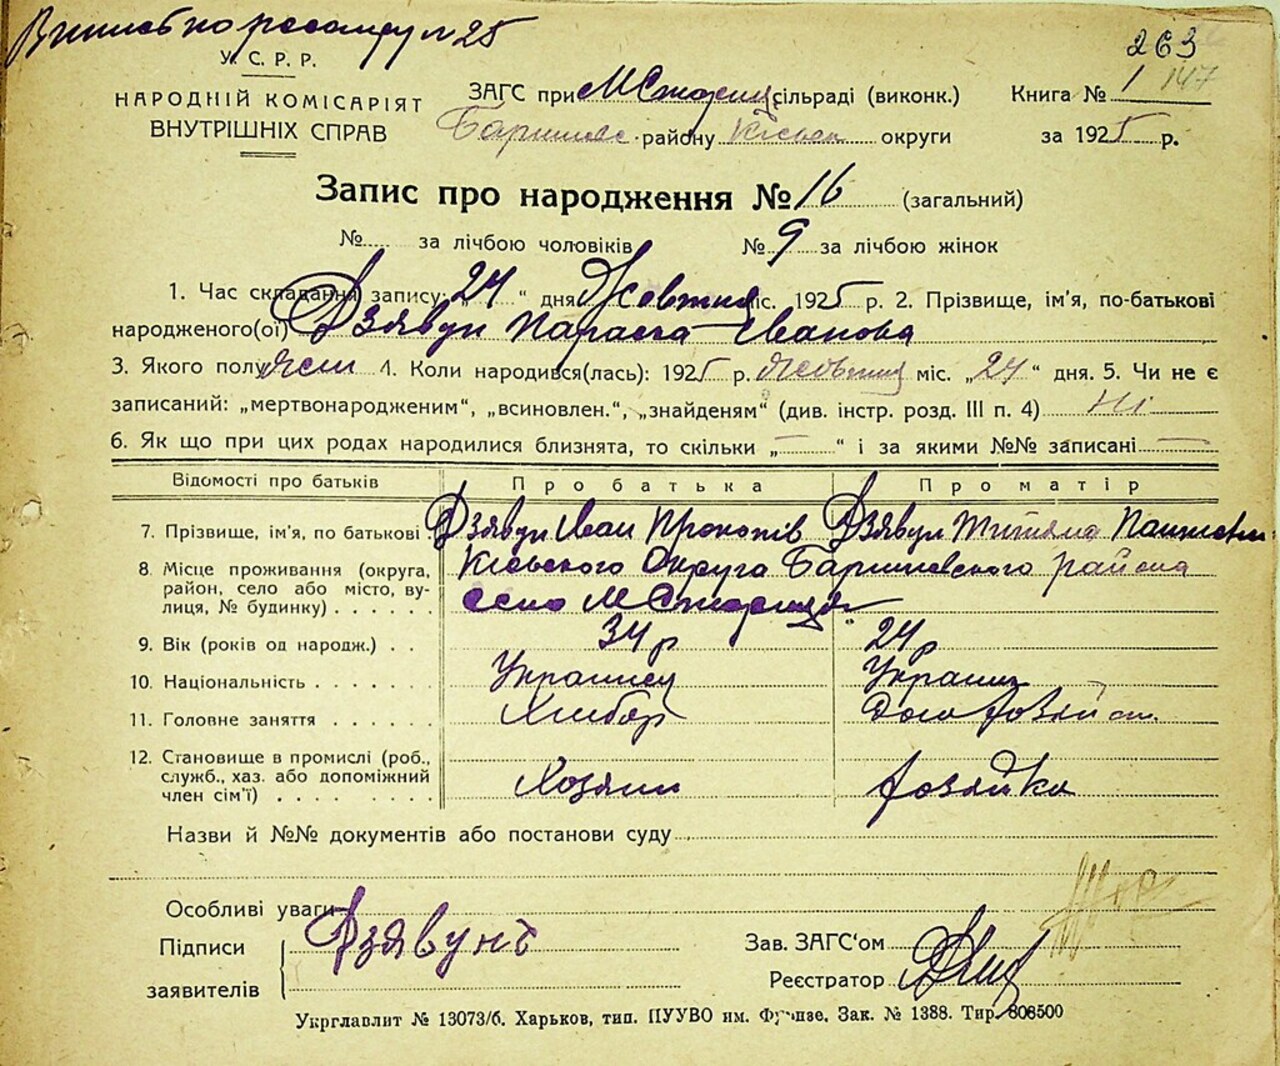 Випись по розсилу № 25
263
У. С. Р. Р.
НАРОДНІЙ КОМІСАРІЯТ
ВНУТРІШНІХ СПРАВ
ЗАГС при М Старицьк сільраді (виконк.)
Баришівс району Київськ округи
Книга № 1 147
за 1925 р.
Запис про народження № 16 (загальний)
№ за лічбою чоловіків № 9 за лічбою жінок
1. Час складання запису: „24“ дня Жовтня міс. 1925 р. 2. Прізвище, ім’я, по-батькові
народженого(ої) Дзявун Параска Іванова
3. Якого полу жін 4. Коли народився(лась): 1925 р. Жовтня міс. „24“ дня. 5. Чи не є
записаний: „мертвонародженим“, „всиновлен.“, „знайденям“ (див. інстр. розд. III п. 4) Ні
6. Як що при цих родах народилися близнята, то скільки „—“ і за якими №№ записані —
Відомості про батьків Про батька Про матір
7. Прізвище, ім’я, по батькові Дзявун Иван Прокопів Дзявун Титяна
8. Місце проживання (округа, район, село або місто, вулиця, № будинку) Киевьского Округа Баришевского района
село М Старица
9. Вік (років од народж.) 34 р 24 р
10. Національність Украинец Украинк
11. Головне заняття Хлибор Дом хозяйст.
12. Становище в промислі (роб., служб., хаз. або допоміжний член сім’ї) Хозяин хозяйка
Назви й №№ документів або постанови суду
Особливі уваги
Підписи
заявителів
Дзявунъ
Зав. ЗАГС‘ом
Реєстратор
Укрглавлит № 13073/б. Харьков, тип. ПУУВО им. Фрунзе. Зак. № 1388. Тир. 808500